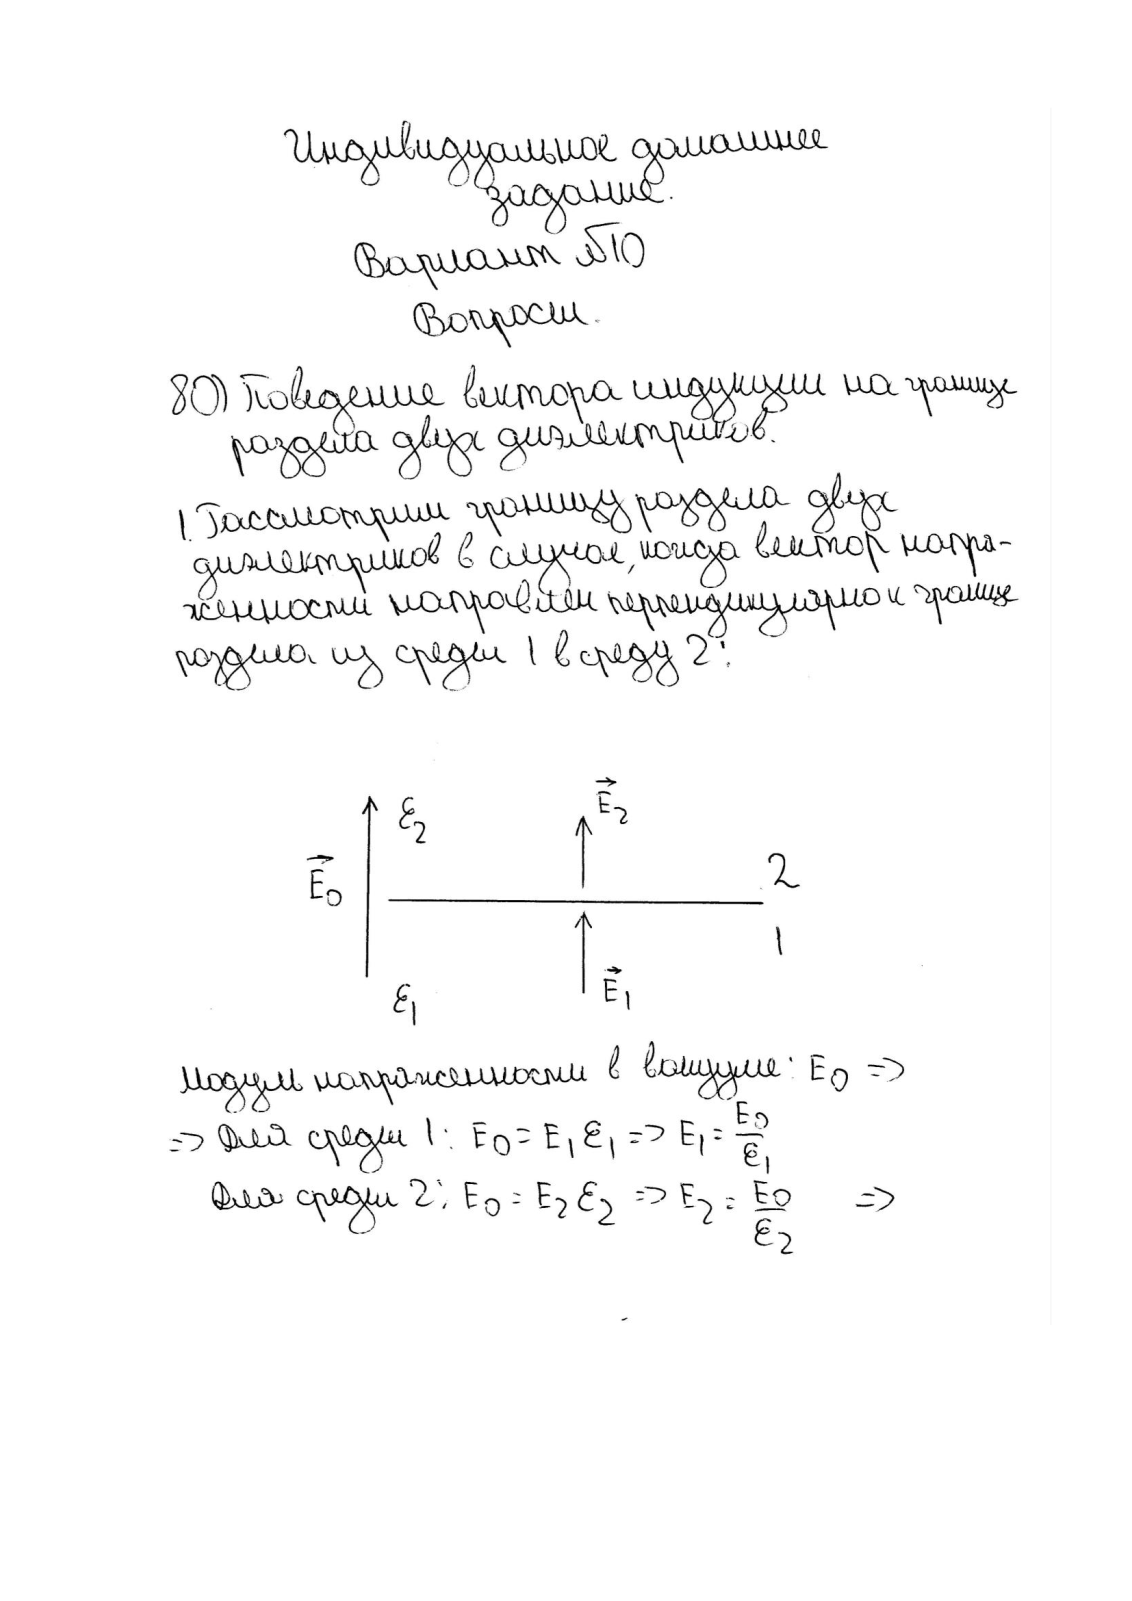 Индивидуальное домашнее
задание.
Вариант №10
Вопросы.
80) Поведение вектора индукции на границе
раздела двух диэлектриков.
1. Рассмотрим границу раздела двух
диэлектриков в случае, когда вектор напря-
женности направлен перпендикулярно к границе
раздела из среды 1 в среду 2:
E⃗₂
ε₂
E⃗₀
2
1
ε₁
E⃗₁
Модуль напряженности в вакууме: E₀ =>
=> Для среды 1: E₀ = E₁ε₁ => E₁ = E₀/ε₁
Для среды 2: E₀ = E₂ε₂ => E₂ = E₀/ε₂ =>